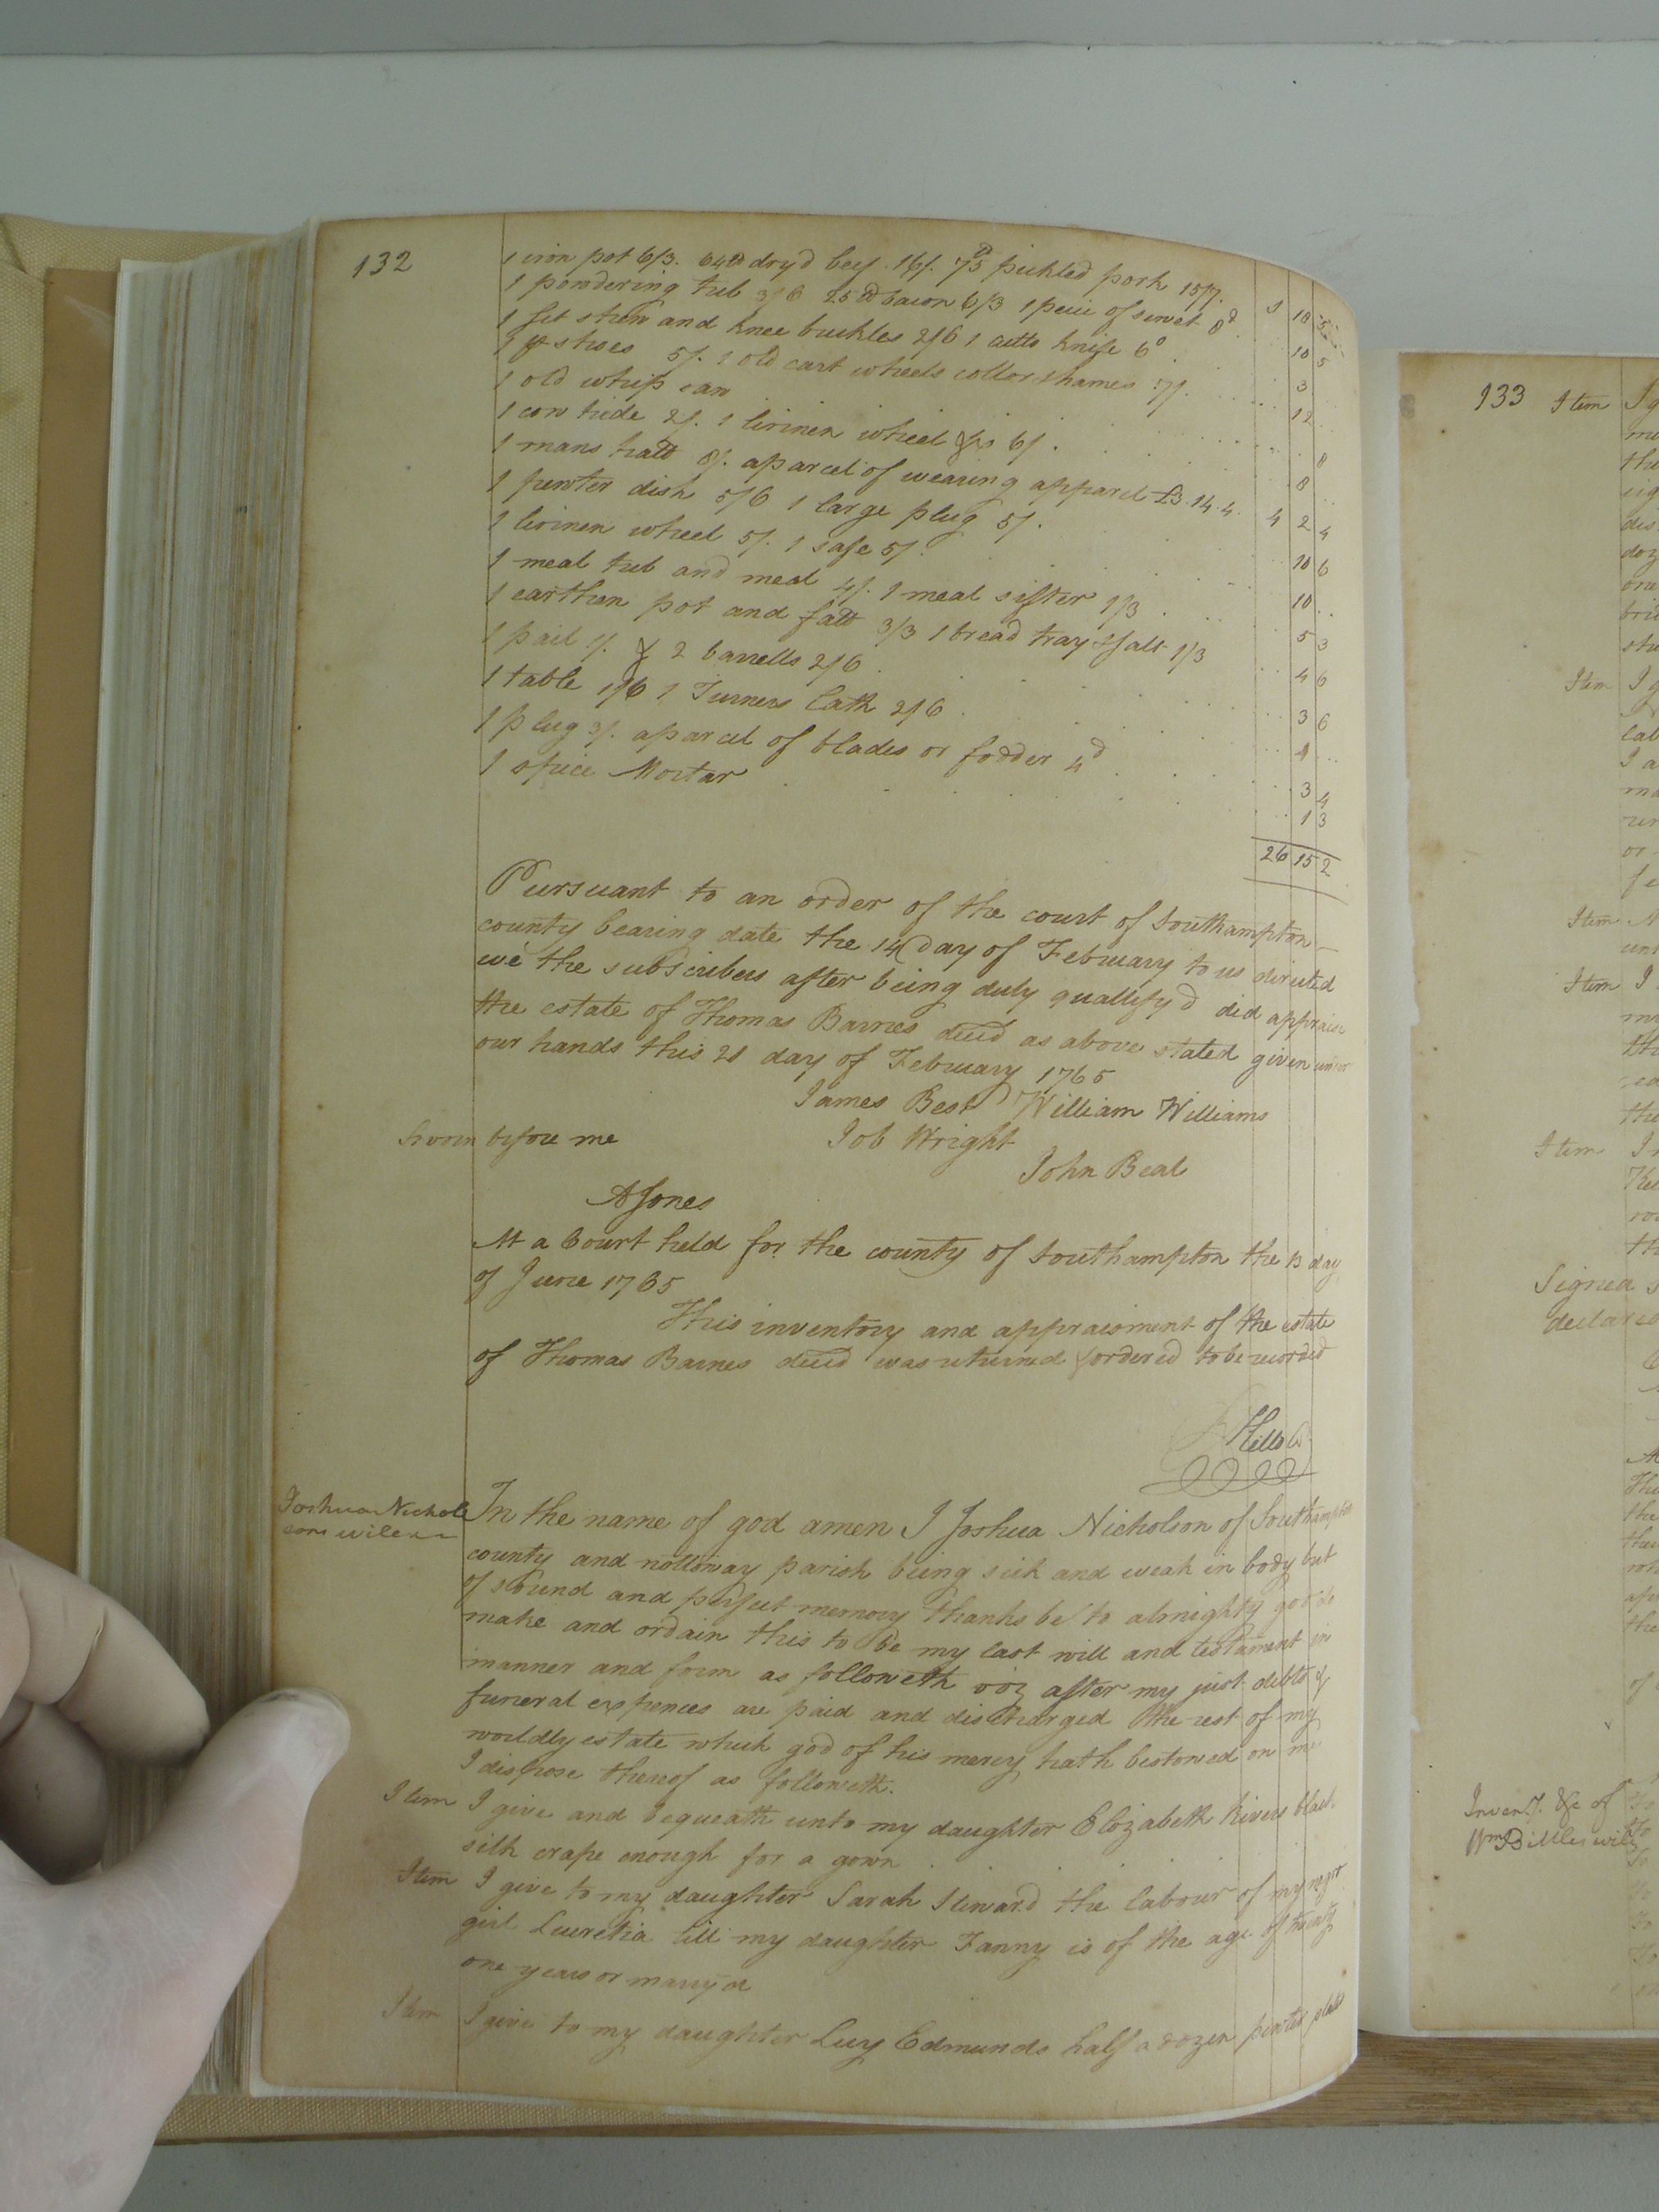 132
1 iron pot 6/3. 64 lb dry'd beef 16/. 75 lb pickled pork 15/7. 18
1 powdering tub 3/6 25 lb bacon 6/3 1 peice of sewet 8d 10 5
1 set stew and knee buckles 2/6 1 cutto knife 6d 3
1 pr shoes 5/. 1 old cart wheels collor & hames 7/. 12
1 old whip saw 8
1 cow hide 2/. 1 linnen wheel &c 6/. 8
1 mans hatt 8/. a parcel of wearing apparel £3.14.4. 4 2 4
1 pewter dish 5/6 1 large plug 5/. 10 6
1 linnen wheel 5/. 1 safe 5/. 10
1 meal tub and meal 4/. 1 meal sifter 1/3 5 3
1 earthen pot and fatt 3/3 1 bread tray & salt 1/3 4 6
1 pail 1/. & 2 barrells 2/6 3 6
1 table 1/6 1 Turners lath 2/6 4
1 plug 3/. a parcel of blades or fodder 4d 3 4
1 spice Mortar 1 3
26 15 2
Pursuant to an order of the court of Southampton
county bearing date the 14 day of February to us directed
we the subscribers after being duly quallify'd did appraise
the estate of Thomas Barnes decd as above stated given under
our hands this 21 day of February 1765
James Best William Williams
Sworn before me Job Wright
John Beal
A Jones
At a Court held for the county of Southampton the 13 day
of June 1765
This inventory and appraisment of the estate
of Thomas Barnes decd was returned & ordered to be recorded
Joshua Nichol
sons will
In the name of god amen I Joshua Nicholson of Southampton
county and nottoway parish being sick and weak in body but
of sound and perfect memory thanks be to almighty god do
make and ordain this to be my last will and testament in
manner and form as followeth viz after my just debts &
funeral expences are paid and discharged the rest of my
worldly estate which god of his mercy hath bestowed on me
I dispose thereof as followeth.
Item I give and bequeath unto my daughter Elizabeth Rivers black
silk crape enough for a gown
Item I give to my daughter Sarah Steward the labour of my negro
girl Lucretia till my daughter Fanny is of the age of twenty
one years or marry'd
Item I give to my daughter Lucy Edmunds half a dozen pewter plates
133 Item
Item
Item
Item
Item
Signed
declared
Inventy. &c of
Wm Bittles will